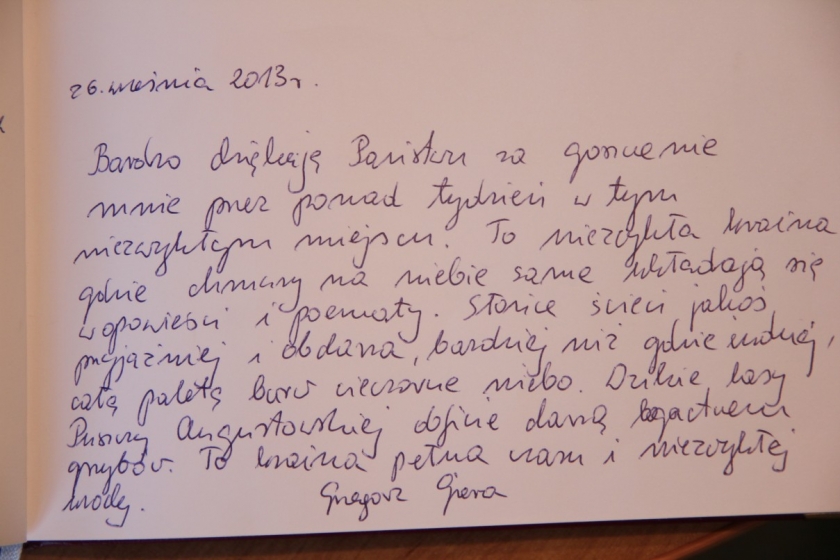 26. września 2013r.
Bardzo dziękuję Państwu za goszczenie
mnie przez ponad tydzień w tym
niezwykłym miejscu. To niezwykła kraina
gdzie chmury na niebie same układają się
w opowieści i poematy. Słońce świeci jakoś
przyjaźniej i obdarza, bardziej niż gdzie indziej,
całą paletą barw wieczorne niebo. Dzikie lasy
Puszczy Augustowskiej obficie darzą bogactwem
grzybów. To kraina pełna czaru i niezwykłej
urody. Grzegorz